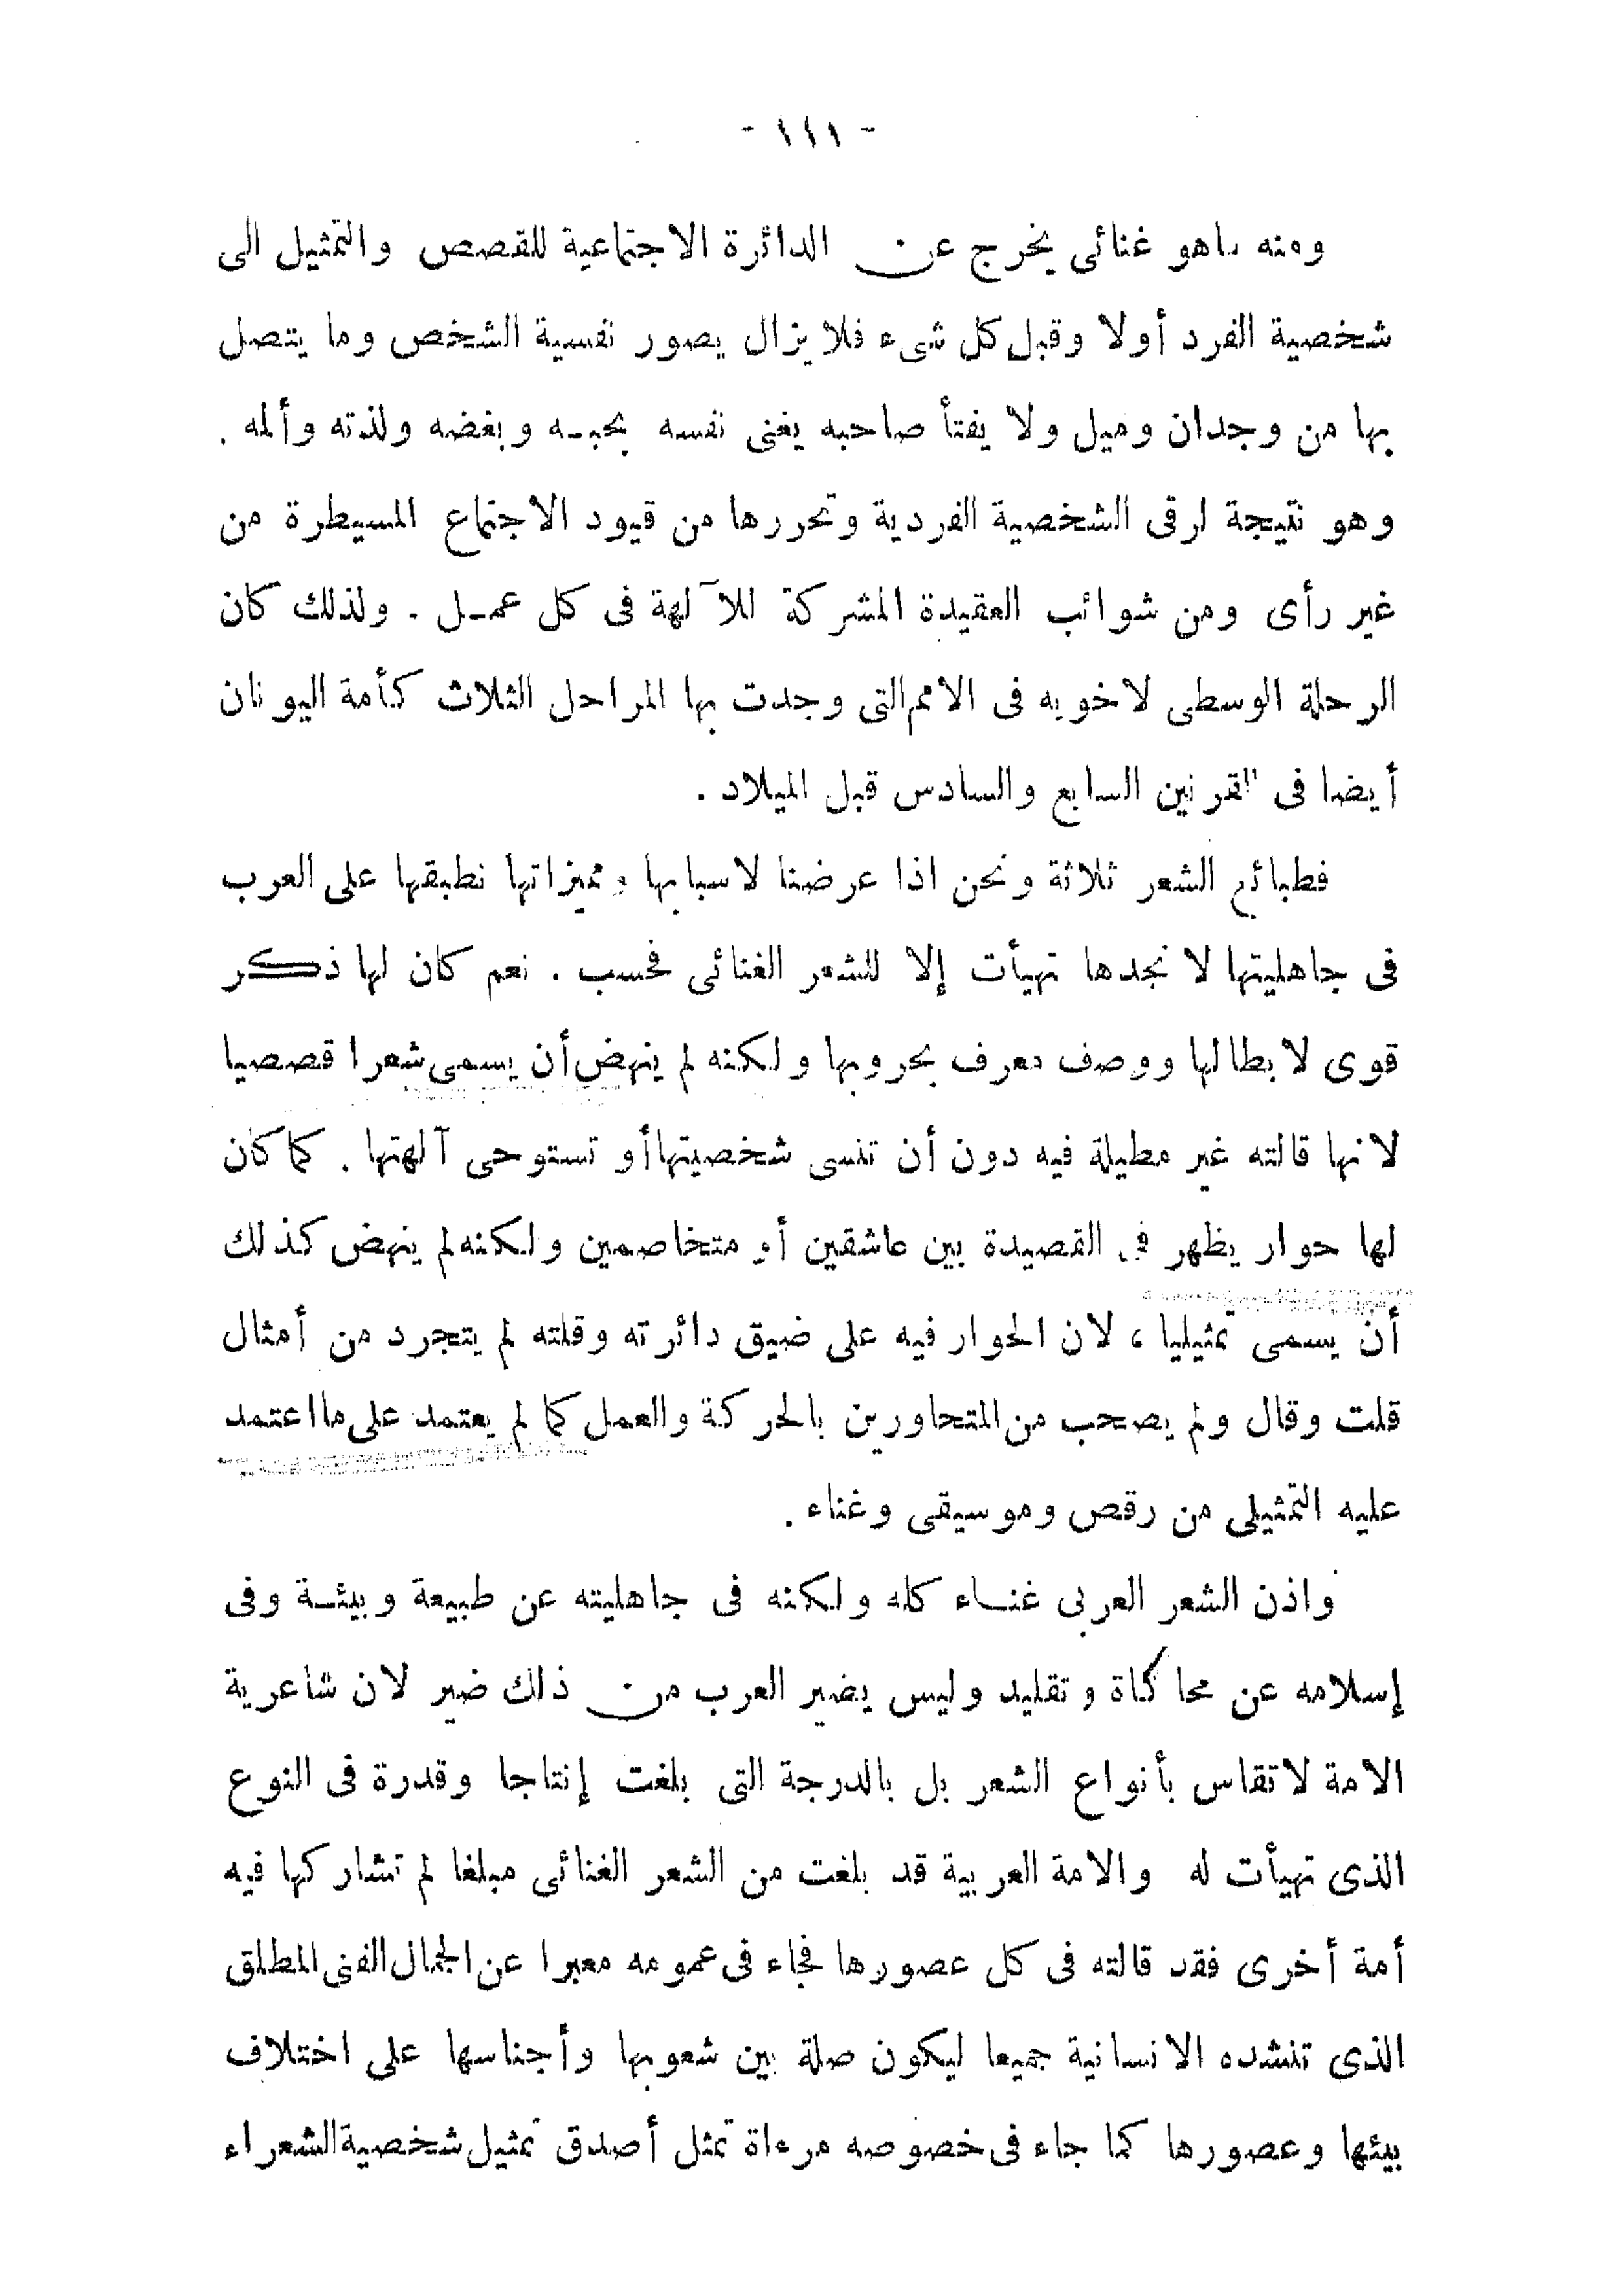 - ١١١ -
ومنه ماهو غنائى يخرج عن الدائرة الاجتماعية للقصص والتمثيل الى
شخصية الفرد أولا وقبل كل شىء فلا يزال يصور نفسية الشخص وما يتصل
بها من وجدان وميل ولا يفتأ صاحبه يغنى نفسه بحبـه وبغضه ولذته وألمه .
وهو نتيجة لرقى الشخصية الفردية وتحررها من قيود الاجتماع المسيطرة من
غير رأى ومن شوائب العقيدة المشركة للآلهة فى كل عمـل . ولذلك كان
الرحلة الوسطى لاخويه فى الامم التى وجدت بها المراحل الثلاث كأمة اليونان
أيضا فى القرنين السابع والسادس قبل الميلاد .
فطبائع الشعر ثلاثة ونحن اذا عرضنا لاسبابها ومميزاتها نطبقها على العرب
فى جاهليتها لا نجدها تهيأت إلا للشعر الغنائى فحسب . نعم كان لها ذكر
قوى لابطالها ووصف معرف بحروبها ولكنه لم ينهض أن يسمى شعرا قصصيا
لانها قالته غير مطيلة فيه دون أن تنسى شخصيتها أو تستوحى آلهتها . كما كان
لها حوار يظهر فى القصيدة بين عاشقين أو متخاصمين ولكنه لم ينهض كذلك
أن يسمى تمثيليا ، لان الحوار فيه على ضيق دائرته وقلته لم يتجرد من أمثال
قلت وقال ولم يصحب من المتحاورين بالحركة والعمل كما لم يعتمد على ما اعتمد
عليه التمثيلى من رقص وموسيقى وغناء .
واذن الشعر العربى غنـاء كله ولكنه فى جاهليته عن طبيعة وبيئـة وفى
إسلامه عن محاكاة وتقليد وليس يضير العرب من ذلك ضير لان شاعرية
الامة لا تقاس بأنواع الشعر بل بالدرجة التى بلغت إنتاجا وقدرة فى النوع
الذى تهيأت له والامة العربية قد بلغت من الشعر الغنائى مبلغا لم تشاركها فيه
أمة أخرى فقد قالته فى كل عصورها فجاء فى عمومه معبرا عن الجمال الفنى المطلق
الذى تنشده الانسانية جميعا ليكون صلة بين شعوبها وأجناسها على اختلاف
بيئها وعصورها كما جاء فى خصوصه مرءاة تمثل أصدق تمثيل شخصية الشعراء